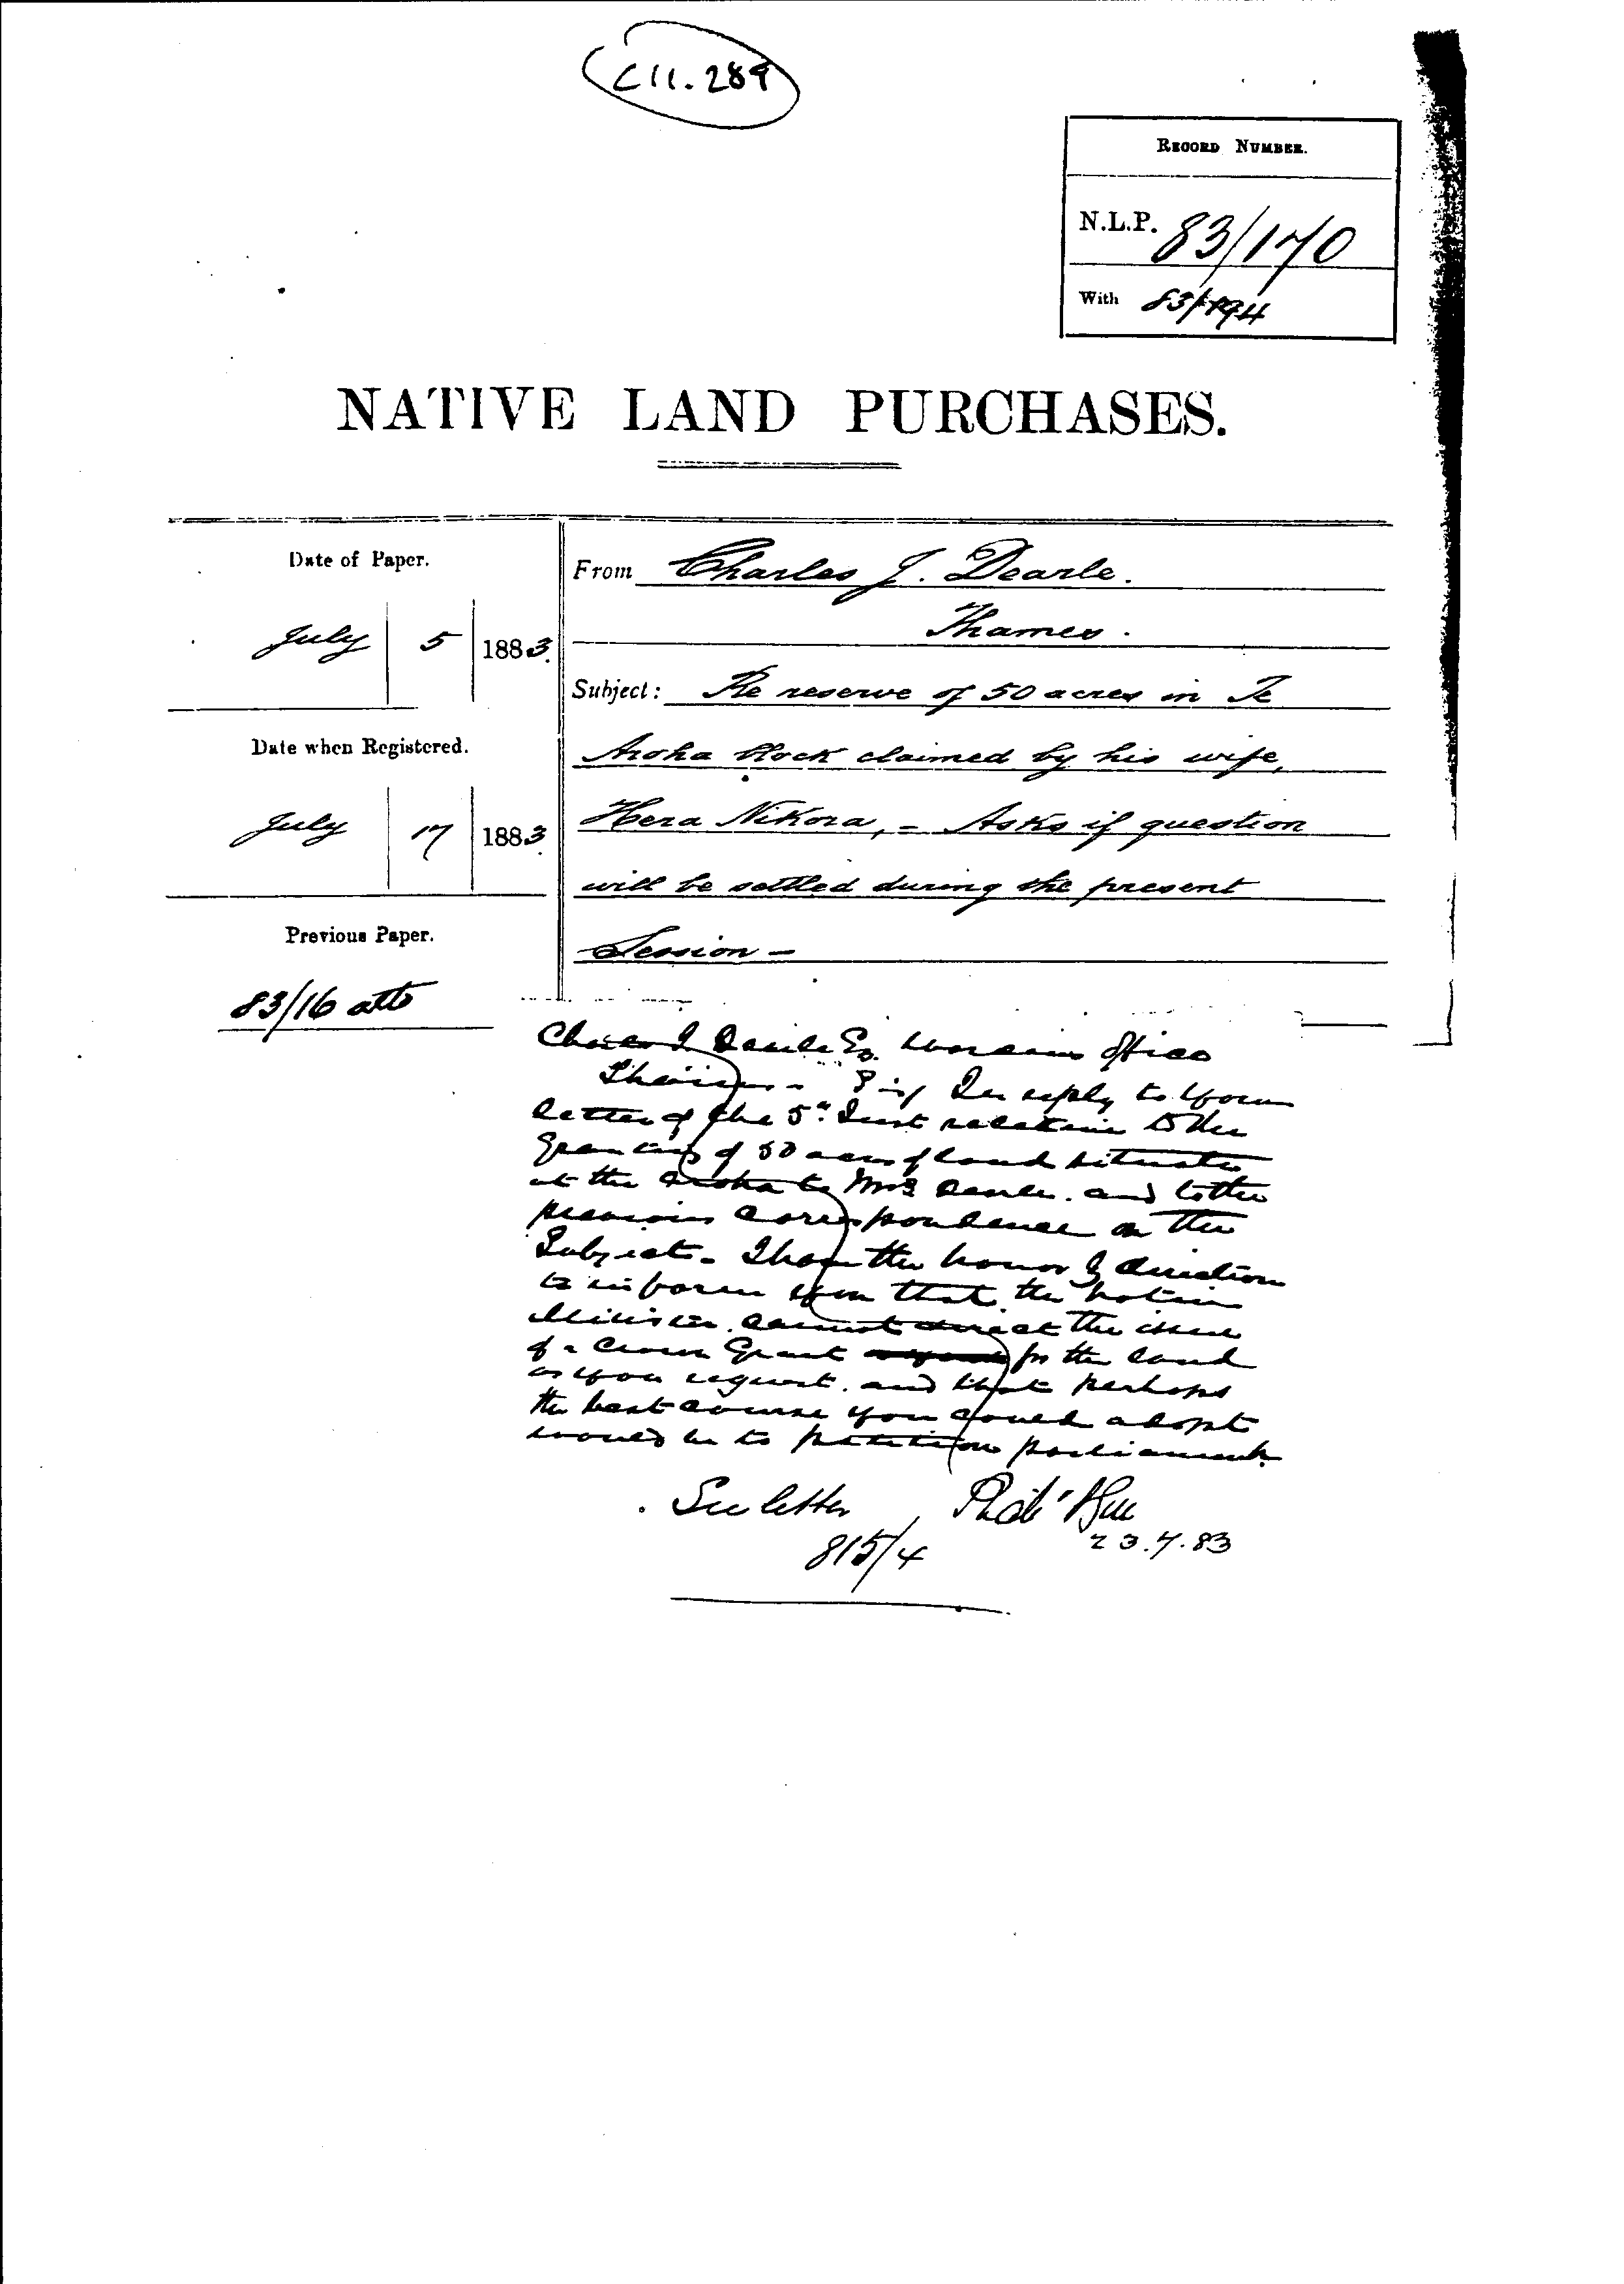 C11.289
RECORD NUMBER.
N.L.P. 83/170
With 83/194
NATIVE LAND PURCHASES.
Date of Paper.
July 5 1883.
Date when Registered.
July 17 1883.
Previous Paper.
83/16 atts
From Charles J. Dearle.
Thames.
Subject: Re reserve of 50 acres in Te
Aroha block claimed by his wife,
Hera Nikora, - Asks if question
will be settled during the present
Session -
Charles J Dearle Esq. office
Thames - Sir/ In reply to your
letter of the 5th Inst relative to the
Granting of 50 acres of land situate
at the Aroha to Mrs Dearle. and to the
previous correspondence on the
Subject - I have the honor by direction
to inform you that the Native
Minister cannot direct the issue
of a Crown Grant for the land
as you request. and that perhaps
the best course you could adopt
would be to petition parliament.
See letter
815/4
23.7.83